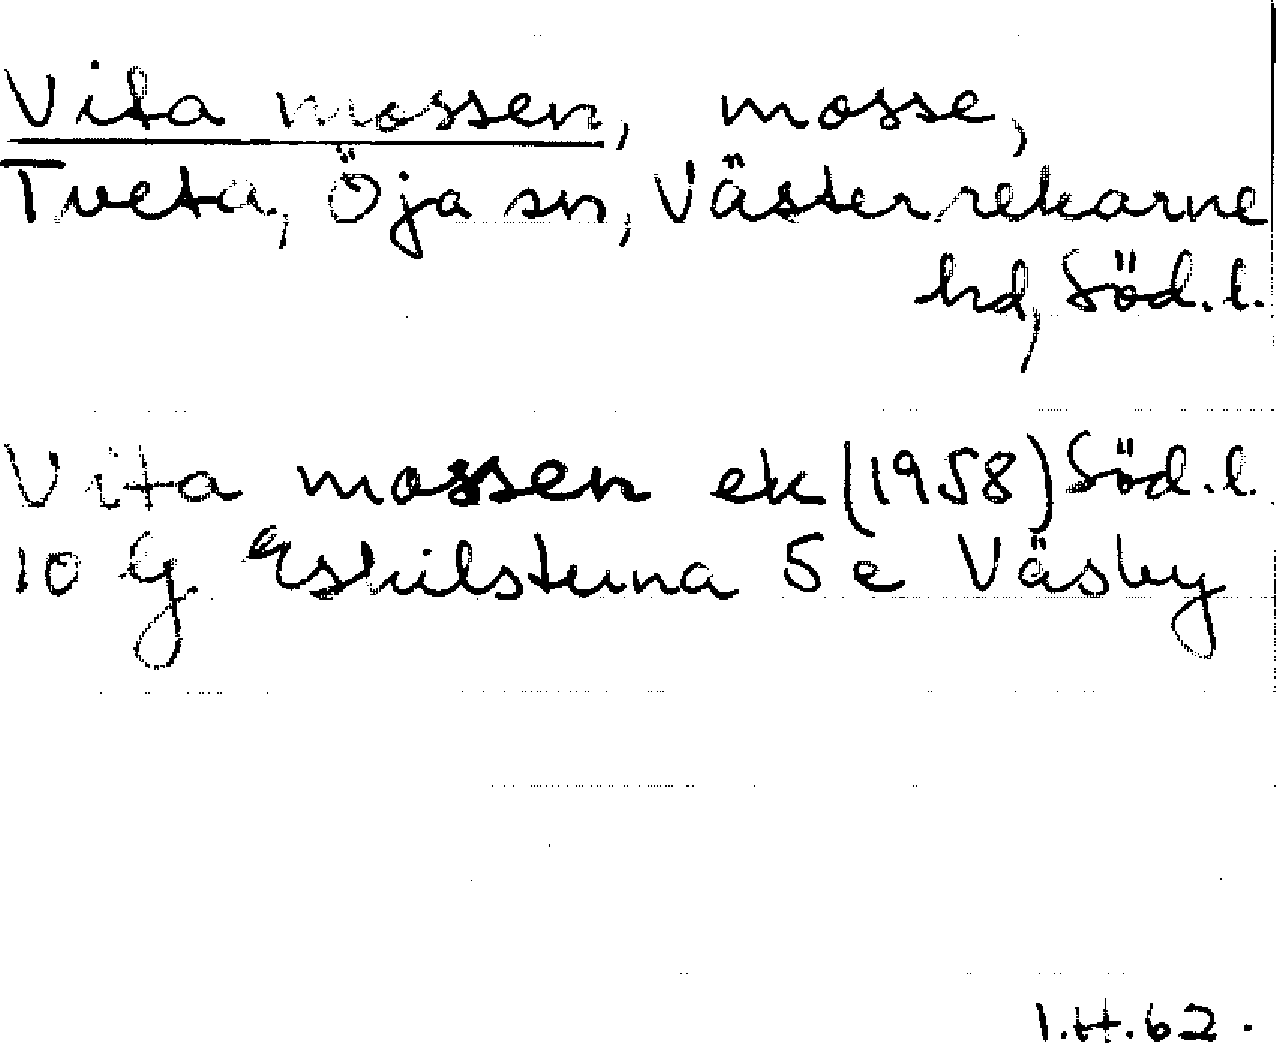 Vita mossen, mosse,
Tveta, Öja sn, Västerrekarne
hd, Söd.l.
Vita mossen ek (1958) Söd.l.
10 G Eskilstuna 5e Väsby
I.H.62.